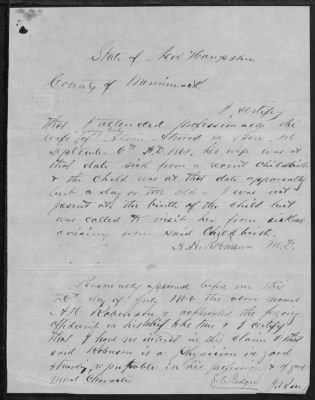 State of New Hampshire
County of Merrimack
I certify
that I attended professionally the
wife of
September 6th A.D. 1861, his wife was at
that date sick from a recent childbirth
& the child was at that date apparently
but a day or two old. I was not
present at the birth of the child but
was called to visit her from sickness
arising from said Childbirth.
Robinson M.D.
Personally appeared before me this
day of July 1866 the above named
Robinson & subscribed the foregoing
affidavit in his
that I had no interest in this claim & that
said Robinson is a Physician in good
standing, reputable in his profession, & of good
moral Character